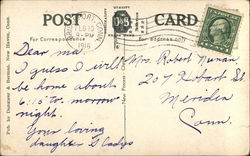 POST CARD
For Correspondence
CONN.
FEB 15
-PM
1916
Dear Ma.
I guess I will
be home about
6:15 to-morrow
night.
Your loving
daughter Gladys
Mrs. Robert Nunan
207 Hobart St
Meriden
Conn.
Pub. by Danziger & Berman, New Haven, Conn.